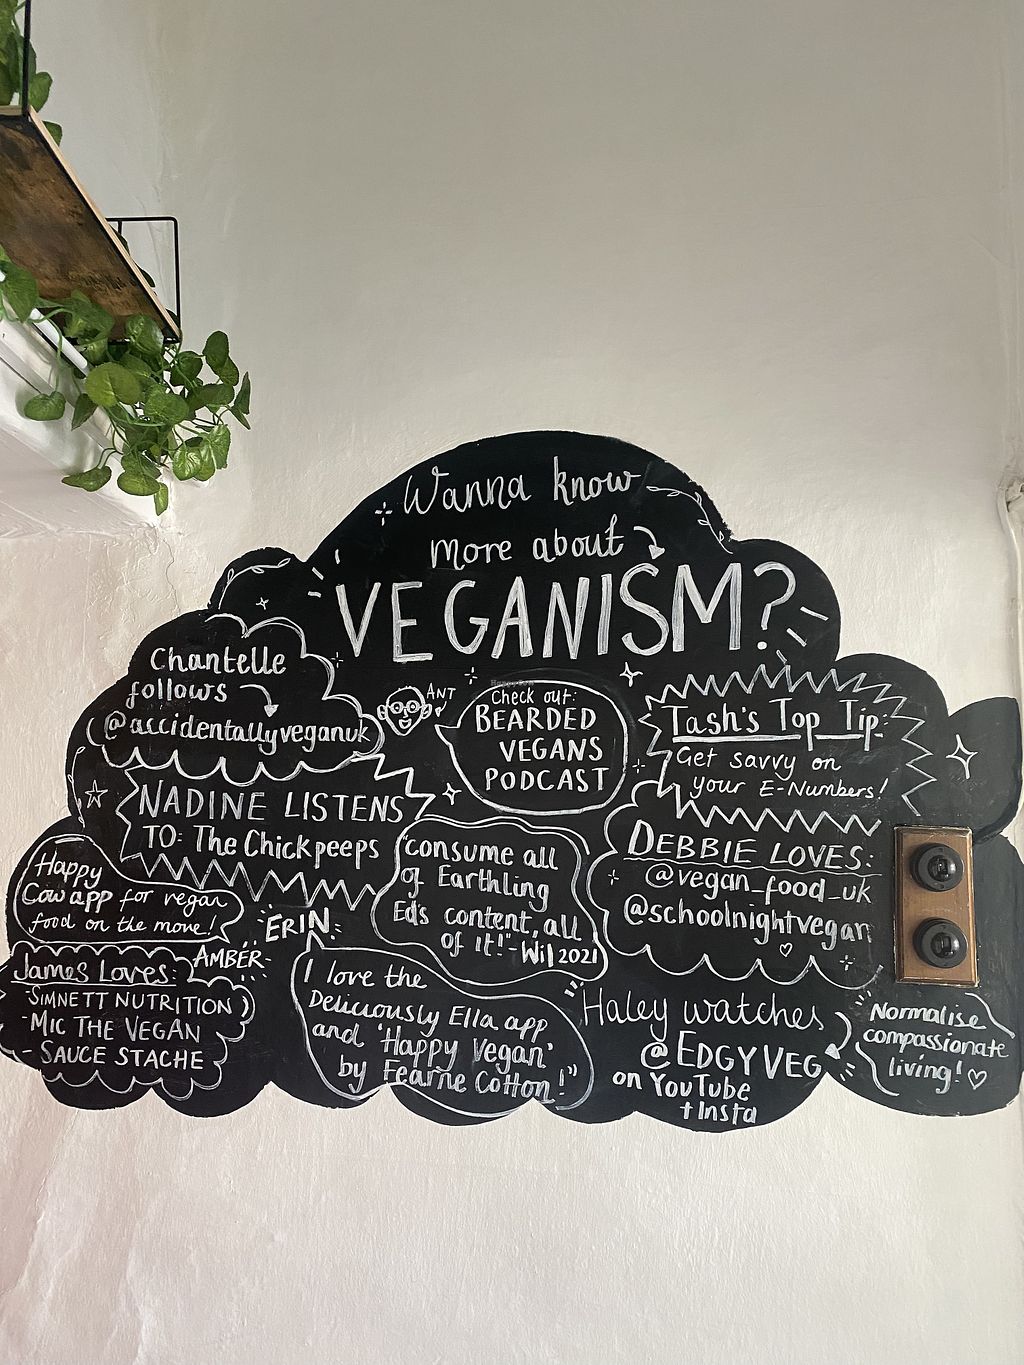 Wanna know
more about
VEGANISM?
Chantelle
follows
@accidentallyveganuk
ANT
Check out:
BEARDED
VEGANS
PODCAST
Tash's Top Tip:
Get savvy on
your E-Numbers!
NADINE LISTENS
TO: The Chickpeeps
"consume all
of Earthling
Ed's content, all
of it!" - Wil 2021
DEBBIE LOVES:
@vegan_food_uk
@schoolnightvegan
Happy
Cow app for vegan
food on the move!
AMBER
ERIN
James Loves:
- SIMNETT NUTRITION
- MIC THE VEGAN
- SAUCE STACHE
I love the
Deliciously Ella app
and 'Happy Vegan'
by Fearne Cotton!"
Haley watches
@EDGYVEG
on YouTube
+ Insta
Normalise
compassionate
living!